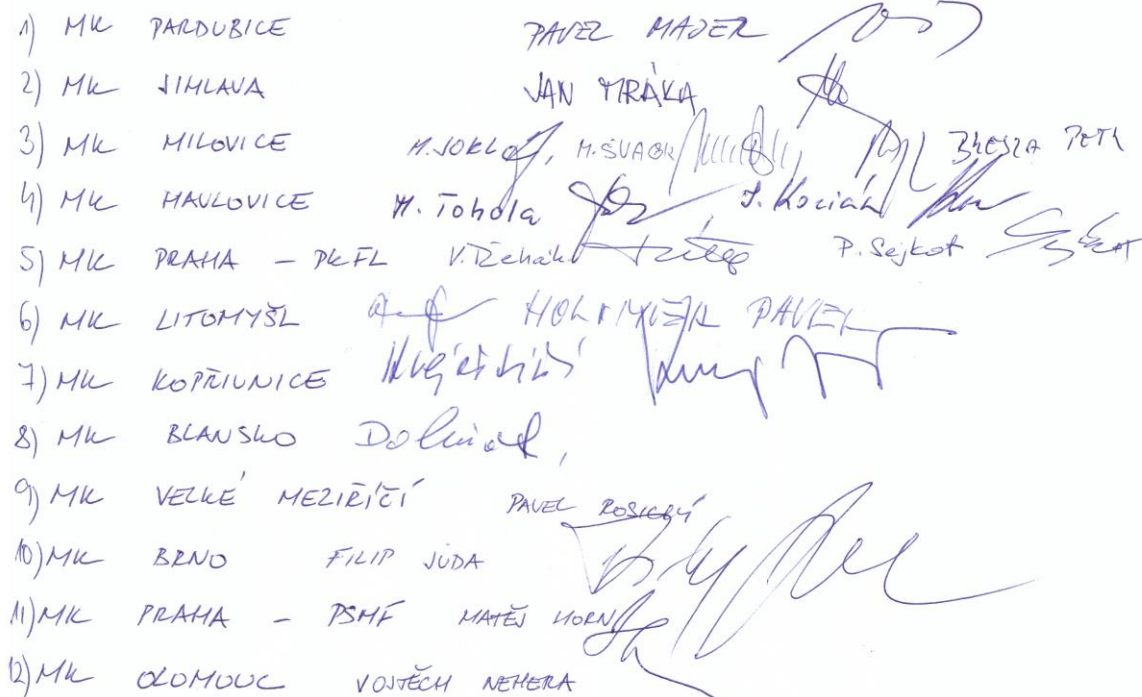 1) MK PARDUBICE PAVEL MAJER
2) MK JIHLAVA JAN MRÁKA
3) MK MILOVICE M. SOKL M. ŠVAGR PETR
4) MK HAVLOVICE M. Tohola J. Kocián
5) MK PRAHA - PKFL V. Řehák P. Sejkot
6) MK LITOMYŠL PAVEL
7) MK KOPŘIVNICE
8) MK BLANSKO
9) MK VELKÉ MEZIŘÍČÍ PAVEL ROSICKÝ
10) MK BRNO FILIP JŮDA
11) MK PRAHA - PSMF MATĚJ HORN
12) MK OLOMOUC VOJTĚCH NEHERA